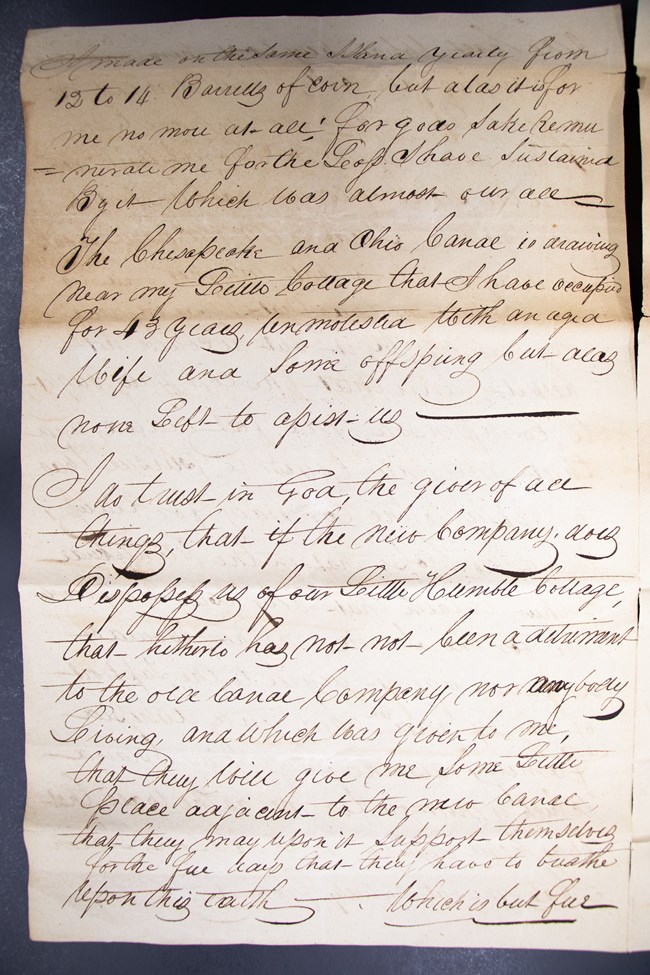 I made on the same Island yearly from
12 to 14 Barrells of corn, but alas it is for
me no more at all! for gods sake Remu
=nerate me for the Loss I have Sustained
By it Which Was almost our all
The Chesapeake and Ohio Canal is drawing
near my Little Cottage that I have occupied
for 43 years, Unmolested With an aged
Wife and Some offspring but alas
none Left to assist us
I do trust in God, the giver of all
things, that if the new Company does
Dispossess us of our Little Humble Cottage,
that hitherto has not not been a detriment
to the old Canal Company nor any body
Living, and Which Was given to me,
that they Will give me Some Little
place adjacent to the new Canal,
that they may upon it Support themselves
for the few days that they have to breathe
Upon this earth Which is but few